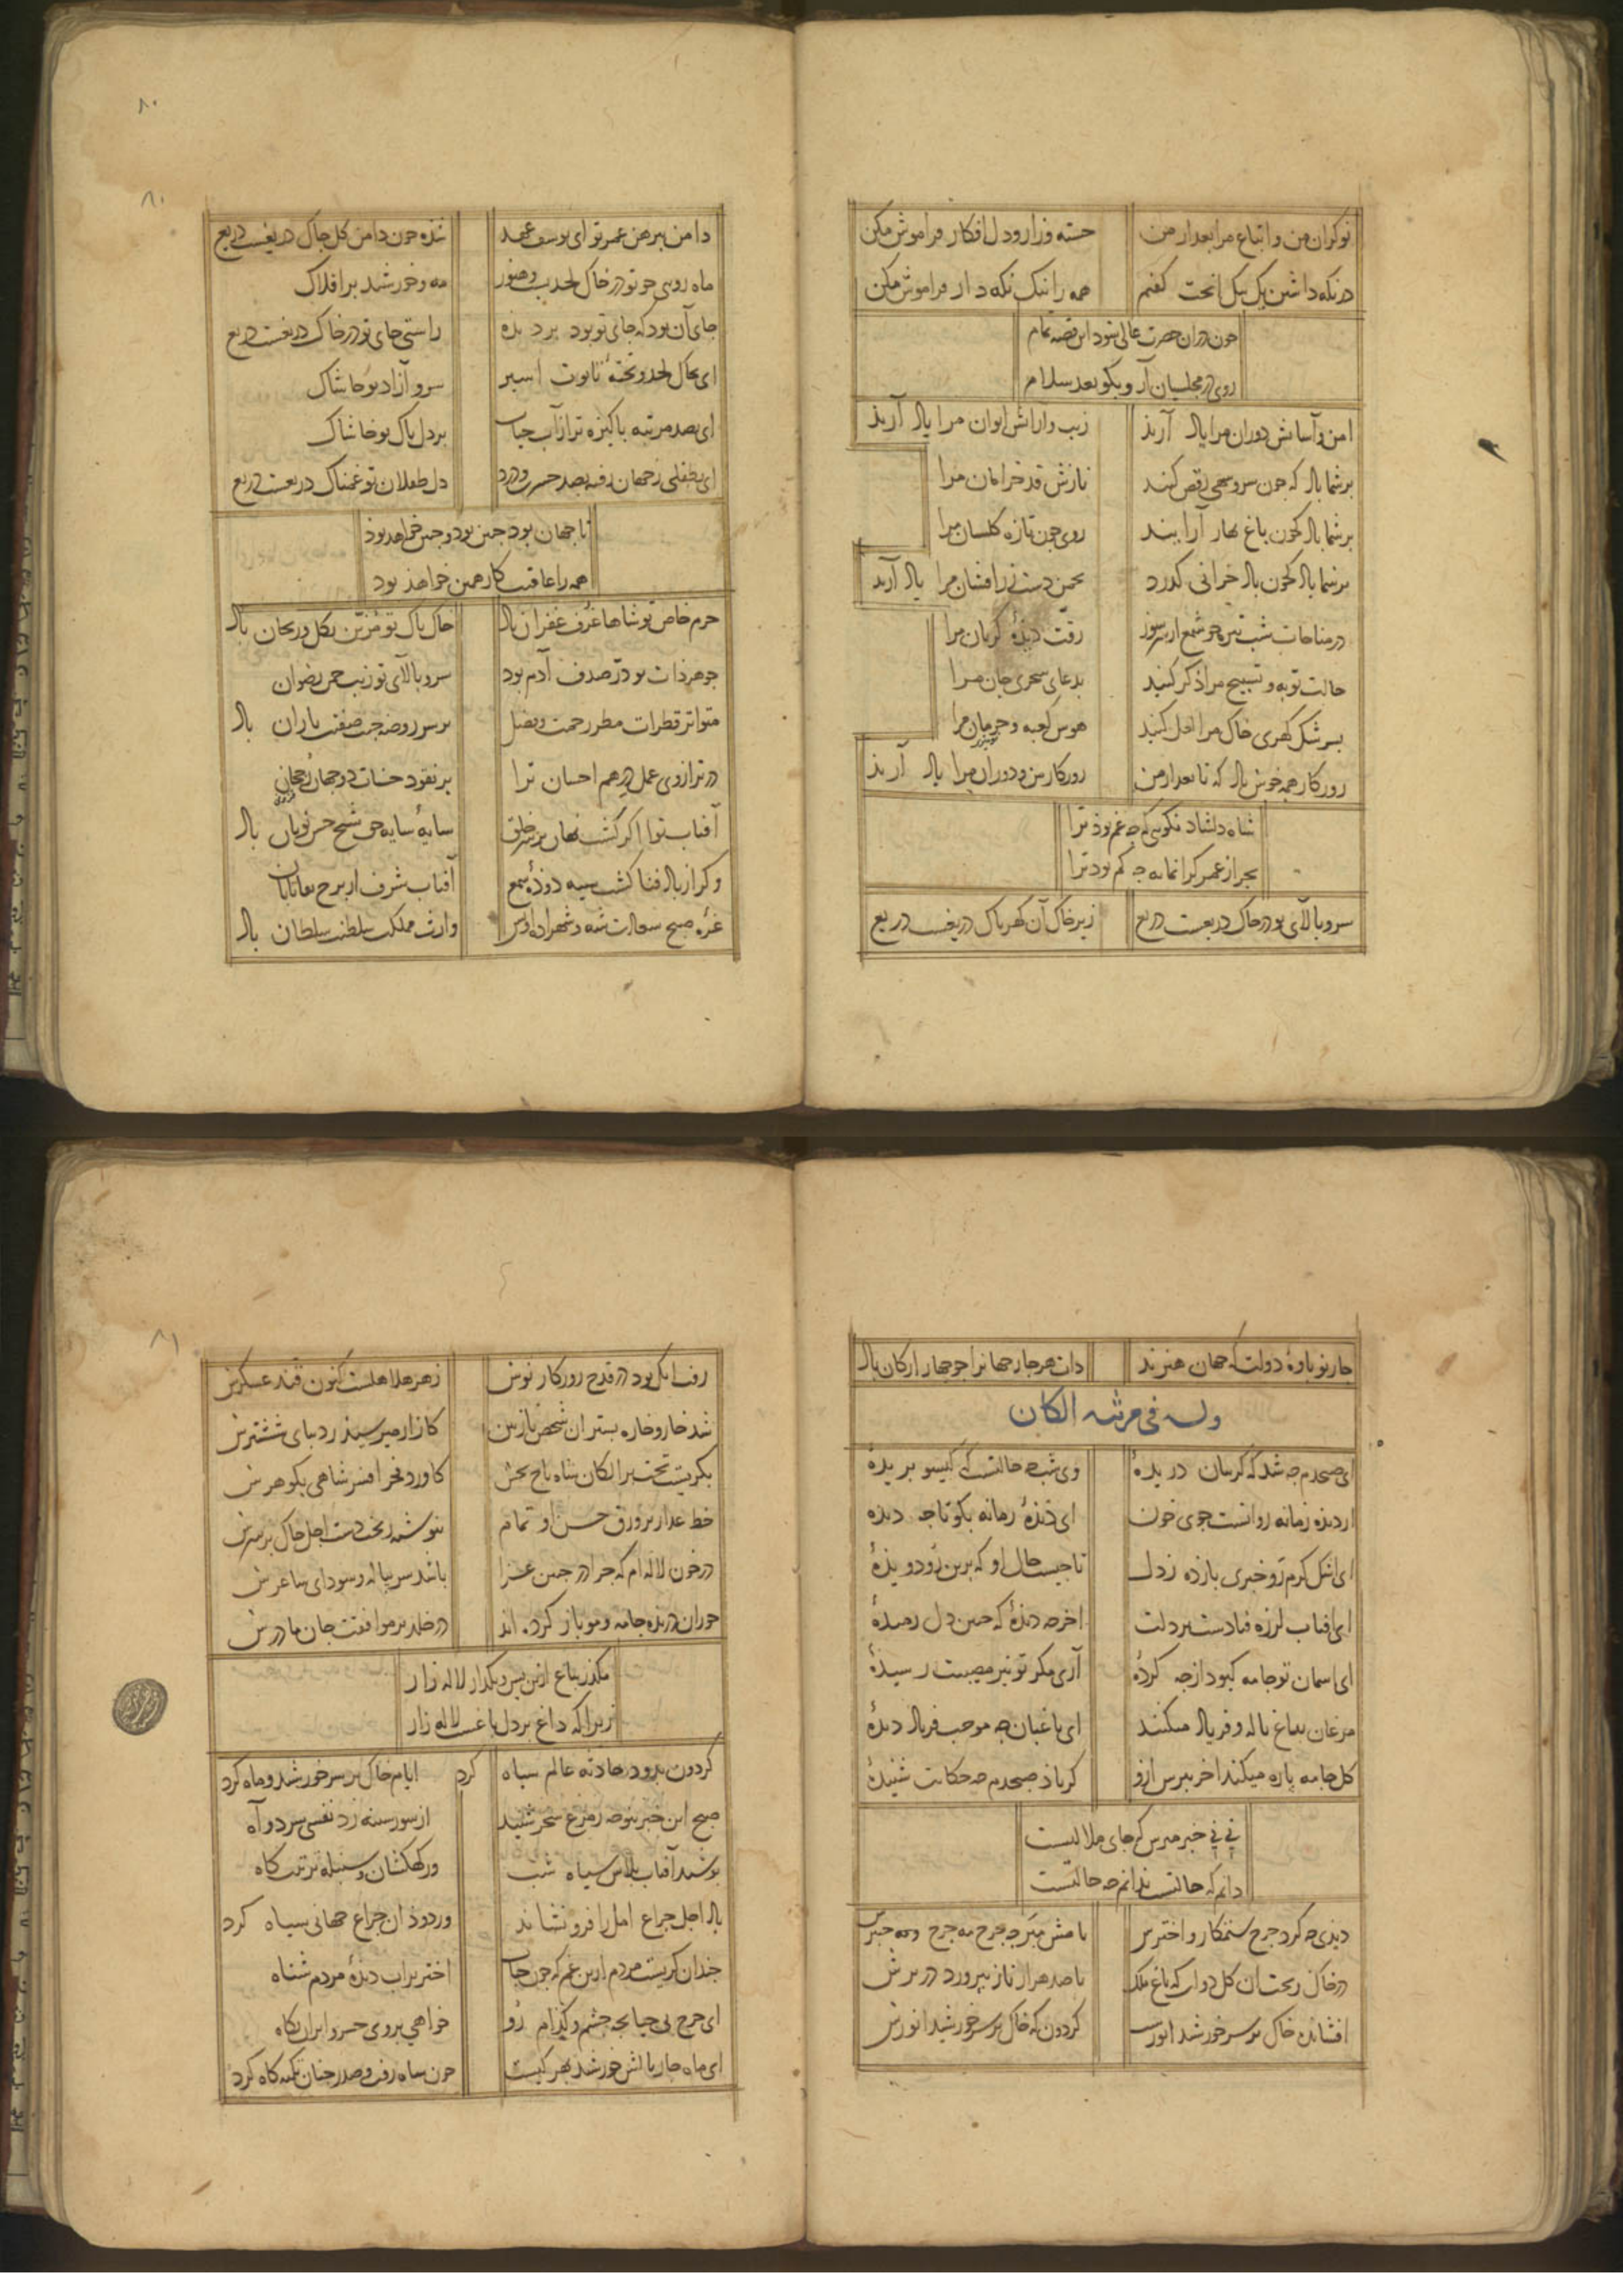 نوکران من و اتباع مرا بعد از من خسته وزار ودل افکار فراموش مکن
در نکه داشتن یک بیک انجت کفتم همه را نیک نکه دار فراموش مکن
جون دران حضرت عالی شود این قصه تمام
روی در مجلسیان آر وبکو بعد سلام
امن وآسایش دوران مرا یاد آرید زیب وآرایش ایوان مرا یاد آرید
بر شما باد که جون سرو سهی رقص کند نازش قد خرامان مرا
بر شما باد که جون باغ بهار آرایند روی جون تازه کلستان مرا
بر شما باد که جون باد خزانی کذرد بجمن دست زرافشان مرا یاد آرید
در مناجات شب تیره جو شمع از سر سوز رقت دیدهٔ کریان مرا
حالت توبه و تسبیح مرا ذکر کنید بدعای سحری جان مرا
بسرشک کهری خاک مرا لعل کنید هوس کعبه و حرمان مرا
روزکار همه خوش باد که تا بعد از من روزکار من و دوران مرا یاد آرید
شاه دلشاد نکویی که جه غم بود ترا
بجز از عمر کرانمایه جه کم بود ترا
سرو بالای تو در خاک دریغست دریغ زیر خاک آن کهر پاک دریغست دریغ
۸۰
۸۰
دامن پیرهن عمر تو ای یوسف عهد شده جون دامن کل جاک دریغست دریغ
ماه رویی جو تو در خاک لحد مه و خورشید بر افلاک
جای آن بود که جای تو بود بر دیده راستی جای تو در خاک دریغست دریغ
ای بخاک لحد و تختهٔ تابوت اسیر سرو آزاد تو خاشاک
ای بصد مرتبه پاکیزه تر از آب حیات بر دل پاک تو خاشاک
ای بطفلی ز جهان رفته بصد حسرت ودرد دل طفلان تو غمناک دریغست دریغ
تا جهان بود جنین بود و جنین خواهد بود
همه را عاقبت کار همین خواهد بود
حرم خاص تو شاها غرف غفران باد خاک پاک تو مزین بکل وریحان باد
جوهر ذات تو در صدف آدم بود سرو بالای تو زیب جمن رضوان
متواتر قطرات مطر رحمت و فضل بر سر روضه جنت صفتت باران باد
در ترازوی عمل در همم احسان ترا بر نقود حسنات دو جهان رجحان
آفتاب تو اکر کشت نهان بر سر خلق سایهٔ سایه حق شیخ حسن نویان باد
وکر از باد فنا کشت سیه دودهٔ شمع آفتاب شرف از برج بقا تابان
غرهٔ صبح سعادت شه و شهزاده اویس وارث مملکت سلطنت سلطان باد
جار نوباوهٔ دولت که جهان هنرند ذات هر جار جهانرا جو جهار ارکان باد
وله فی مرثیه الکان
ای صبحدم جه شد که کریبان دریدهٔ وی شب جه حالتست که کیسو بریدهٔ
از دیده زمانه روانست جوی خون ای دیدهٔ زمانه بکو تا جه دیده
ای اشک کرم رو خبری بازده ز دل تا جیست حال او که برین رو دویدهٔ
ای آفتاب لرزه فتادست بر دلت آخر جه دیدهٔ که جنین دل رمیدهٔ
ای اسمان تو جامه کبود از جه کردهٔ آری مکر تو نیز مصیبت رسیدهٔ
مرغان بباغ ناله و فریاد میکنند ای باغبان جه موجب فریاد دیدهٔ
کل جامه پاره میکند اخر بپرس ازو کز باد صبحدم جه حکایت شنیدهٔ
نی نی خبر مپرس که جای ملالتست
دانم که حالتست ندانم جه حالتست
دیدی جه کرد جرخ ستمکار و اخترش نامش مبر جه جرخ مه جرخ و مه جنبرش
در خاک ریخت آن کل دولت که باغ ملک با صد هزار ناز بپرورد در برش
افشانده خاک بر سر خورشید انورست کردون که خاک بر سر خورشید انورش
۸۱
رفت انک بود در قدح روزکار نوش زهر هلاهلست کنون قند عسکرش
شد خار و خاره بستر آن شخص نازنین کازار میرسید ز دیبای ششترش
بکریست تخت بر الکان شاه تاج بخش کاورد فخر افسر شاهی بکوهرش
خط عذار بر ورق حسن او تمام ننوشته ریخت دست اجل خاک بر سرش
در خون لاله ام که جرا در جنین عزا باشد سر پیاله و سودای ساغرش
حوران دریده جامه و مو باز کرده اند در خلد بر موافقت جان مادرش
مکذر بباغ ازین پس و بکذار لاله زار
زیرا که داغ بر دل باغست لاله زار
کردون بدود حادثه عالم سیاه کرد ایام خاک بر سر خورشید و ماه کرد
صبح این خبر بنوحه ز مرغ سحر شنید از سوز سینه زد نفس سرد و آه
پوشید آفتاب پلاس سیاه شب ور کهکشان و سنبله ترتیب کاه
باد اجل جراغ امل را فرو نشاند وز دود آن جراغ جهانی سیاه کرد
جندان کریست مردم ازین غم که جون حباب اختر بر آب دیدهٔ مردم شناه
ای جرخ بی حیا بجه جشم و کدام رو خواهی بروی خسرو ایران نکاه
ای ماه جار بالش خورشید بهر کیست جون شاه رفت و صدر جنان تکیه کاه کرد